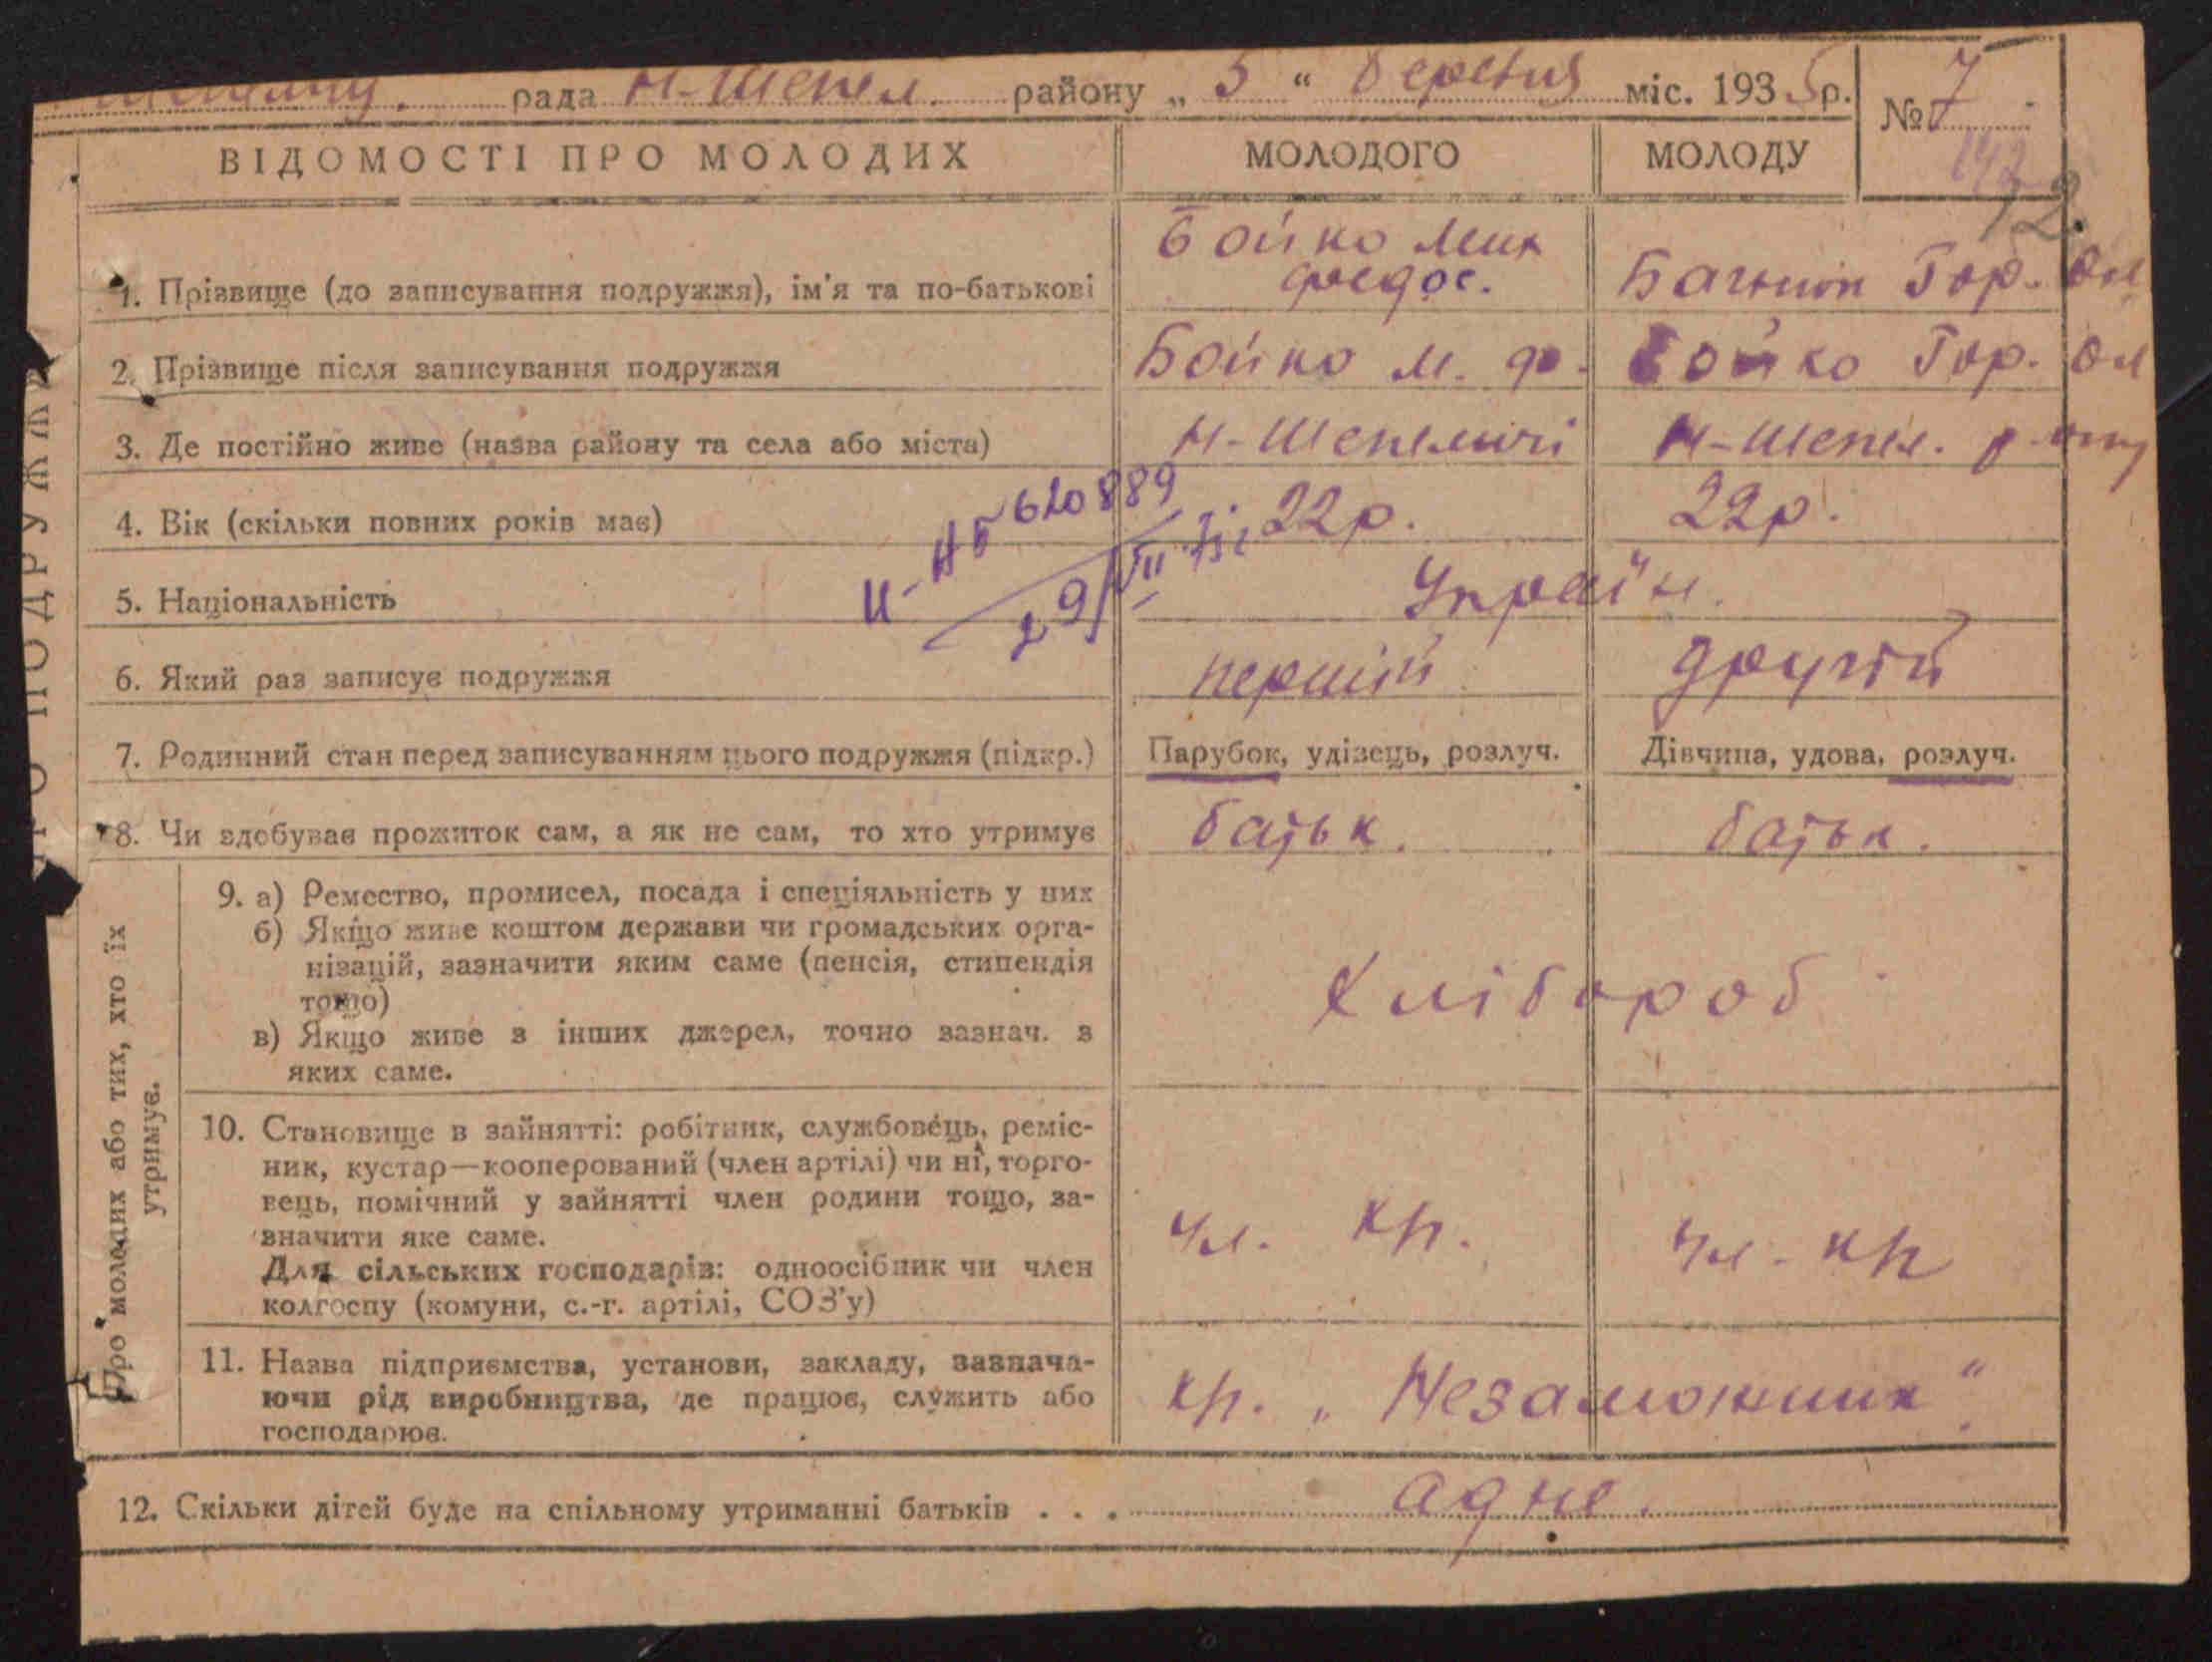 рада Н-Шепел. району „ 5 “ березня міс. 1935 р. № 7
142
72.
ВІДОМОСТІ ПРО МОЛОДИХ МОЛОДОГО МОЛОДУ
1. Прізвище (до записування подружжя), ім'я та по-батькові Бойко Мих Федос. Гор. Ол
2. Прізвище після записування подружжя Бойко М. Ф. Бойко Гор. Ол
3. Де постійно живе (назва району та села або міста) Н-Шепеличі Н-Шепел. р-ону
4. Вік (скільки повних років має) 22р. 22р.
II-НБ 620889
29/VII
5. Національність Україн.
6. Який раз записує подружжя перший другий
7. Родинний стан перед записуванням цього подружжя (підкр.) Парубок, удівець, розлуч. Дівчина, удова, розлуч.
8. Чи здобуває прожиток сам, а як не сам, то хто утримує батьк. батьк.
Про молодих або тих, хто їх
утримує.
9. а) Ремество, промисел, посада і спеціяльність у них
б) Якщо живе коштом держави чи громадських орга-
нізацій, зазначити яким саме (пенсія, стипендія
тощо)
Хлібороб
в) Якщо живе з інших джерел, точно зазнач. з
яких саме.
10. Становище в зайнятті: робітник, службовець, реміс-
ник, кустар—кооперований (член артілі) чи ні, торго-
вець, помічний у зайнятті член родини тощо, за-
значити яке саме.
чл. кр. чл-кр
Для сільських господарів: одноосібник чи член
колгоспу (комуни, с.-г. артілі, СОЗ'у)
11. Назва підприємства, установи, закладу, зазнача-
ючи рід виробництва, де працює, служить або
господарює.
кр. „Незаможник“
12. Скільки дітей буде на спільному утриманні батьків . . . адне.
ПРО ПОДРУЖЖЯ